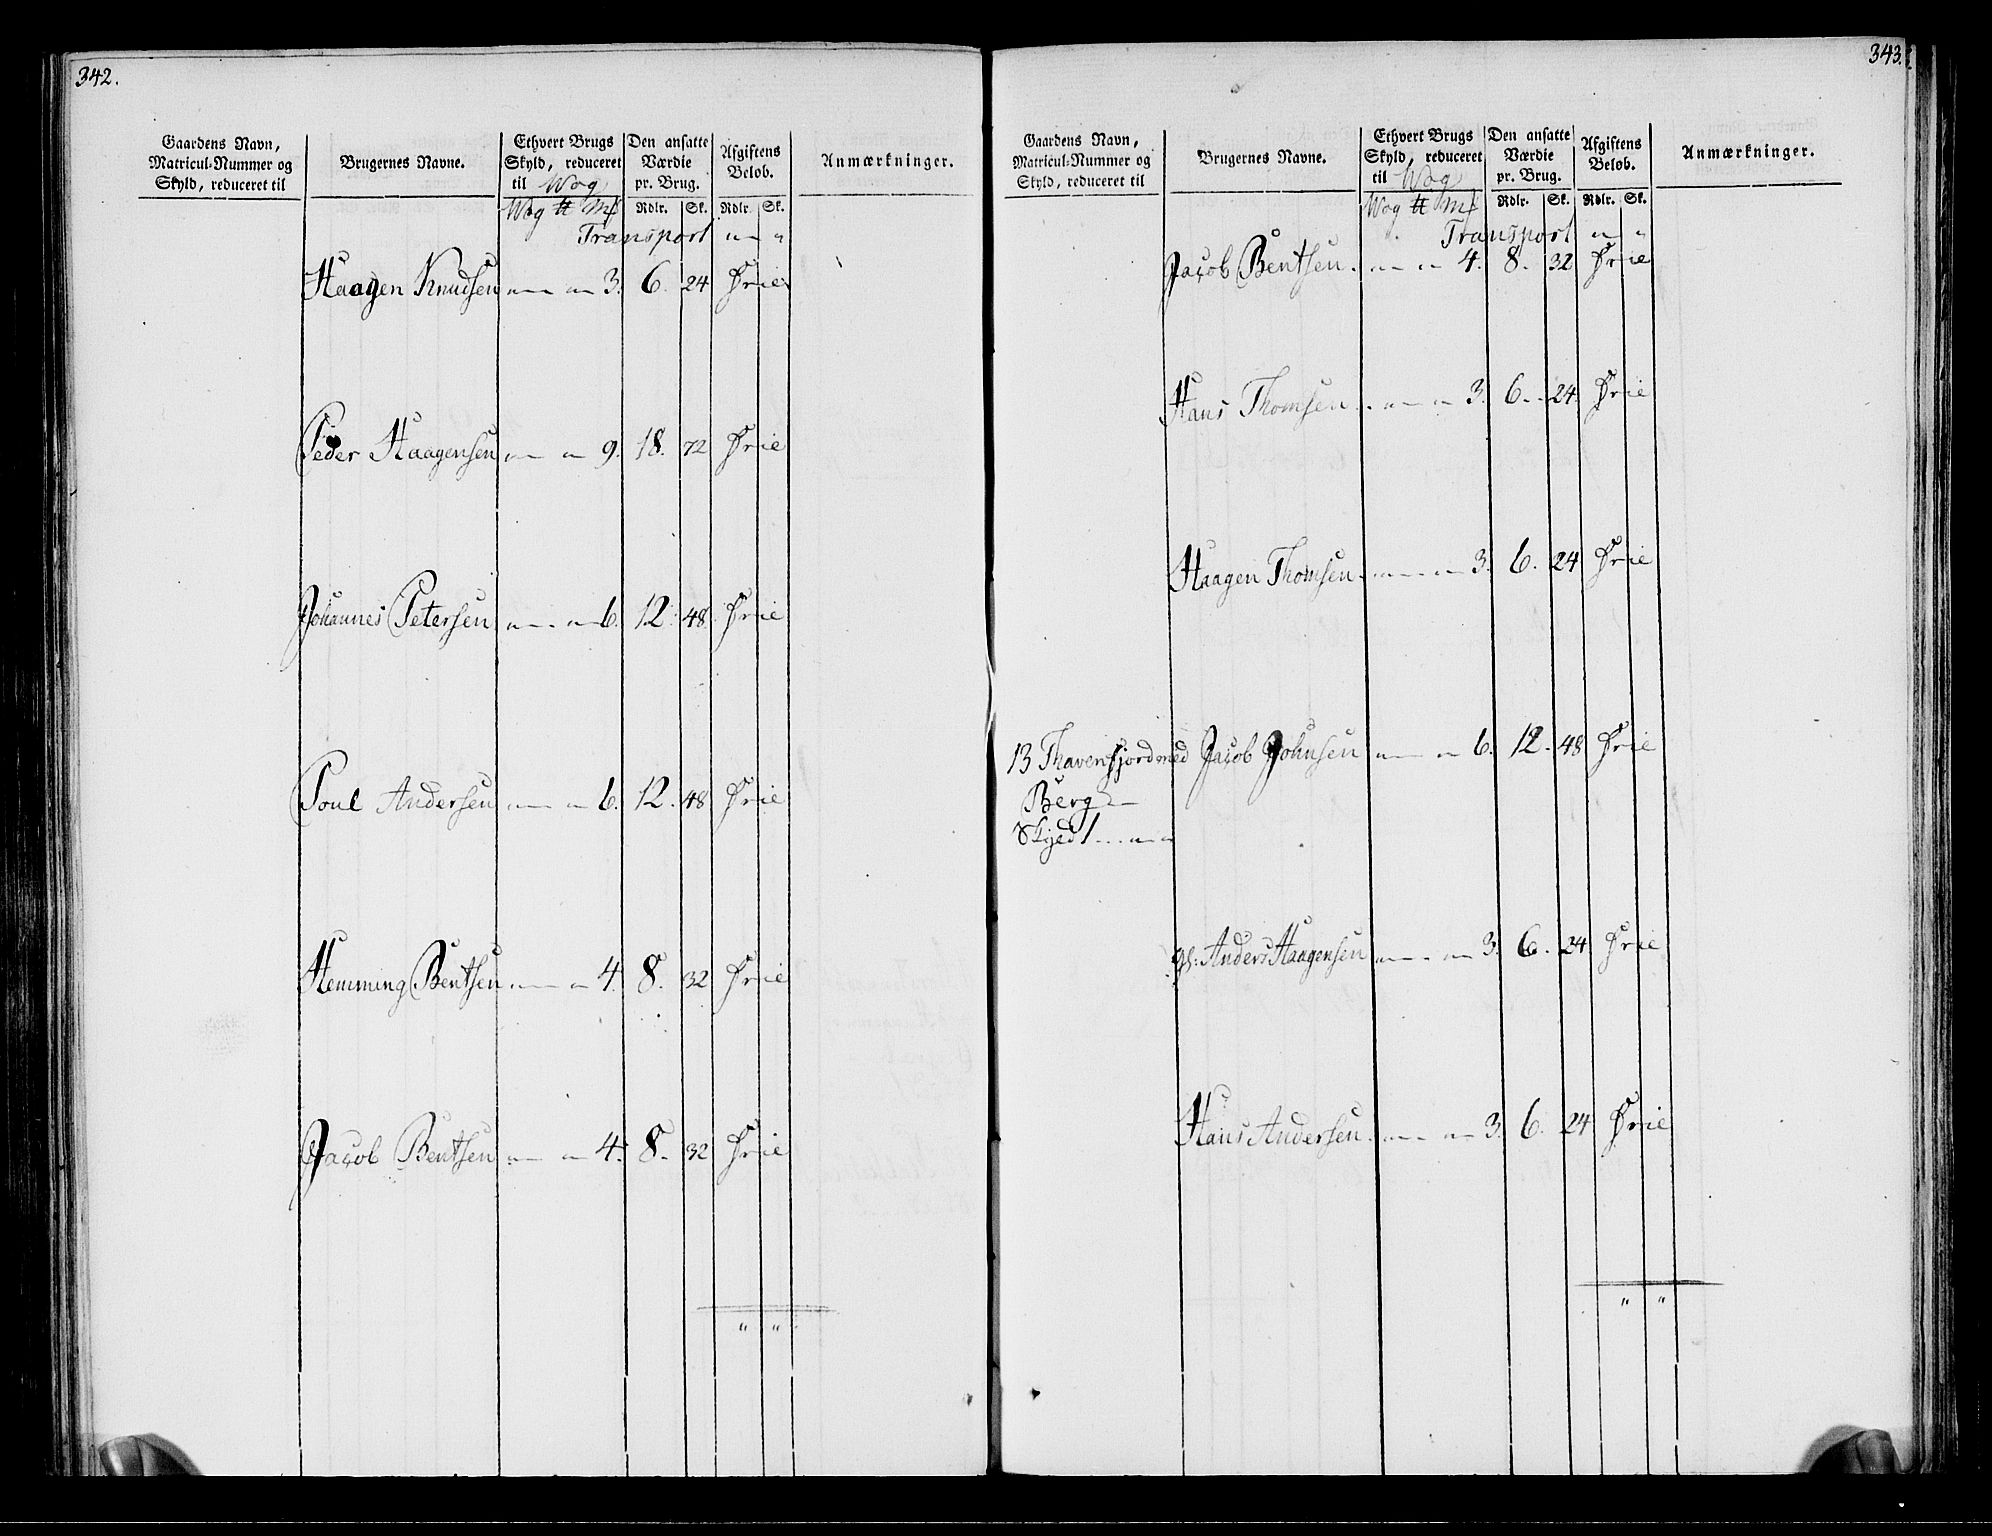 342.
Gaardens Navn, Matricul-Nummer og Skyld, reduceret til
Brugernes Navne.
Ethvert Brugs Skyld, reduceret til Wog
Den ansatte Værdie pr. Brug.
Afgiftens Beløb.
Anmærkninger.
Wog ℔ Mk Rdlr. Sk. Rdlr. Sk.
Transport " "
Haagen Knudsen " " 3. 6. 24 Frie
Peder Haagensen " " 9. 18. 72 Frie
Johannes Petersen " " 6. 12. 48. Frie
Poul Andersen " " 6. 12. 48 Frie
Hemming Bentsen " " 4. 8. 32 Frie
Jacob Bentsen " " 4. 8. 32 Frie
" "
343.
Gaardens Navn, Matricul-Nummer og Skyld, reduceret til
Brugernes Navne.
Ethvert Brugs Skyld, reduceret til Wog
Den ansatte Værdie pr. Brug.
Afgiftens Beløb.
Anmærkninger.
Wog ℔ Mk Rdlr. Sk. Rdlr. Sk.
Transport " "
Jacob Bentsen. " " 4. 8. 32 Frie
Hans Thomsen. " " 3. 6. 24. Frie
Haagen Thomsen. " " 3. 6. 24 Frie
13 Thavensfjord med Jacob Johnsen " " 6. 12. 48 Frie
Berg
Skyld 1 " "
Anders Haagensen " " 3. 6. 24 Frie
Hans Andersen. " " 3. 6. 24 Frie
" "